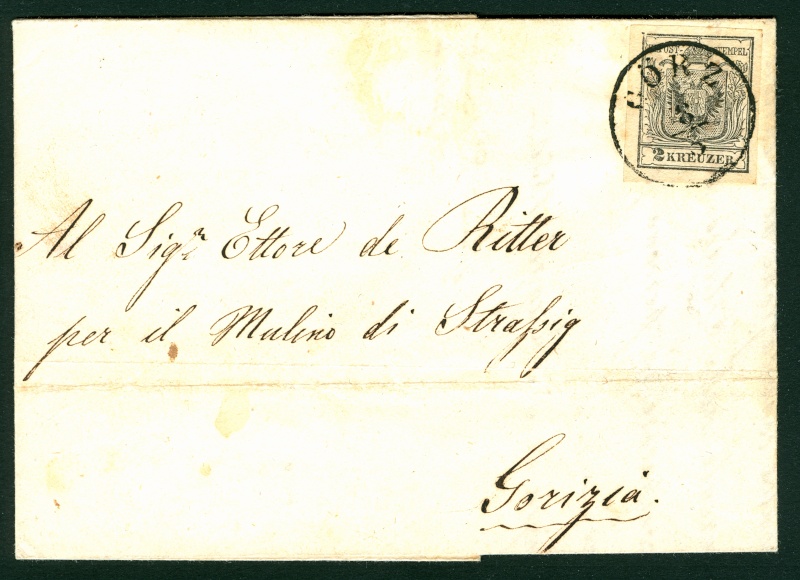 POST-STEMPEL
GÖRZ
2 KREUZER
Al Sigr Ettore de Ritter
per il Mulino di Straſsig
Gorizia.